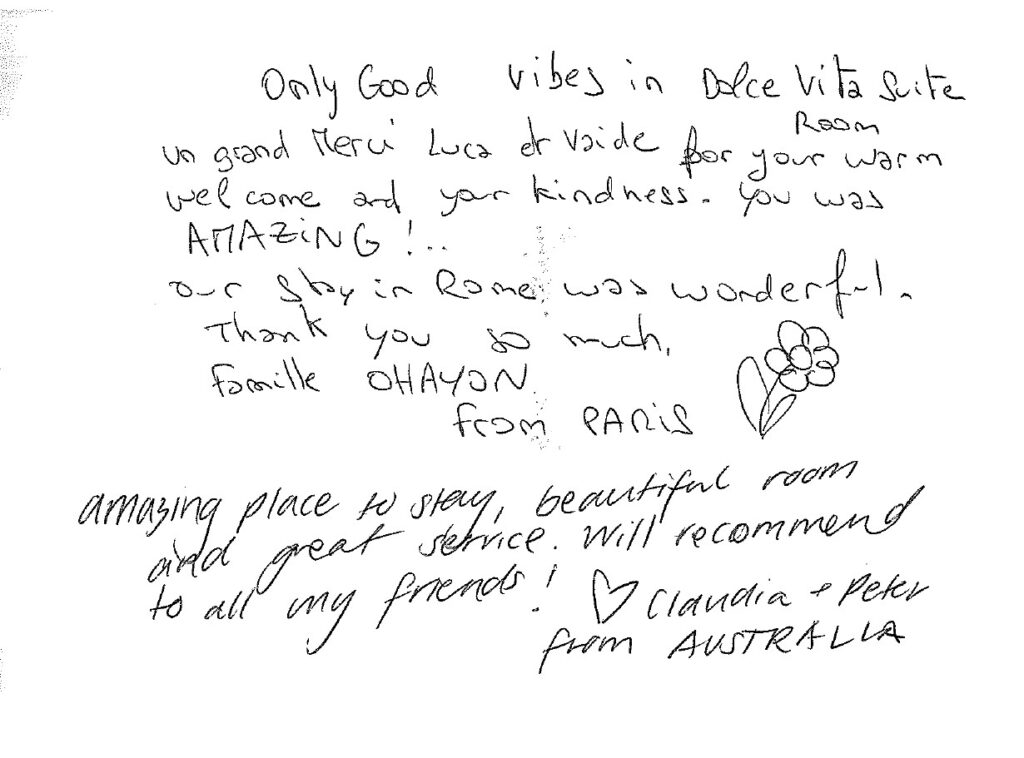 Only Good vibes in Dolce Vita Suite
Room
un grand Merci Luca et Vaide for your warm
welcome and your kindness. You was
AMAZiNG !..
our stay in Rome was wonderful.
Thank you so much,
famille OHAYON
from PARiS
amazing place to stay, beautiful room
and great service. Will recommend
to all my friends! ♡ Claudia + Peter
from AUSTRALIA